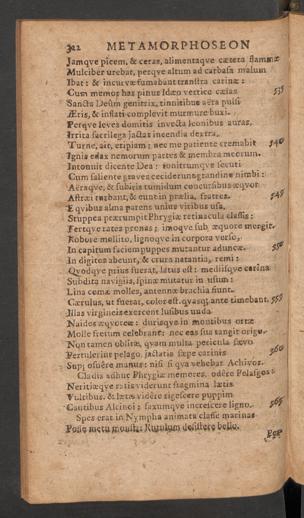 322 METAMORPHOSEON
Jamque picem, & ceras, alimentaque cætera flammæ
Mulciber urebat, perque altum ad carbasa malum
Ibat: & incurvæ fumabant transtra carinæ:
Cum memor has pinus Idæo vertice cæsas 535
Sancta Deûm genitrix, tinnitibus aëra pulsi
Æris, & inflati complevit murmure buxi.
Perque leves domitis invecta leonibus auras,
Irrita sacrilega jactas incendia dextra,
Turne, ait, eripiam: nec me patiente cremabit 540
Ignis edax nemorum partes & membra meorum.
Intonuit dicente Dea: tonitrumque secuti
Cum saliente graves ceciderunt grandine nimbi:
Aëraque, & subitis tumidum concursibus æquor
Astræi turbant, & eunt in prælia, fratres. 545
E quibus alma parens unius viribus usa,
Stuppea prærumpit Phrygiæ retinacula classis:
Fertque rates pronas; imoque sub æquore mergit.
Robore mollito, lignoque in corpora verso,
In capitum faciem puppes mutantur aduncæ. 550
In digitos abeunt, & crura natantia, remi:
Quodque prius fuerat, latus est: mediisque carina
Subdita navigiis, spinæ mutatur in usum:
Lina comæ molles, antennæ brachia fiunt.
Cærulus, ut fuerat, color est. quasque ante timebant, 555
Illas virgineis exercent lusibus undas
Naïdes æquoreæ: durisque in montibus ortæ
Molle fretum celebrant: nec eas sua tangit origo.
Non tamen oblitæ, quam multa pericula sævo
Pertulerint pelago, jactatis sæpe carinis 560
Supposuêre manus: nisi si qua vehebat Achivos.
Cladis adhuc Phrygiæ memores, odêre Pelasgos:
Neritiæque ratis viderunt fragmina lætis
Vultibus: & lætis vidêre rigescere puppim
Vultibus Alcinoi; saxumque increscere ligno. 565
Spes erat in Nympha animata classe marinas
Posse metu monstri Rutulum desistere bello.